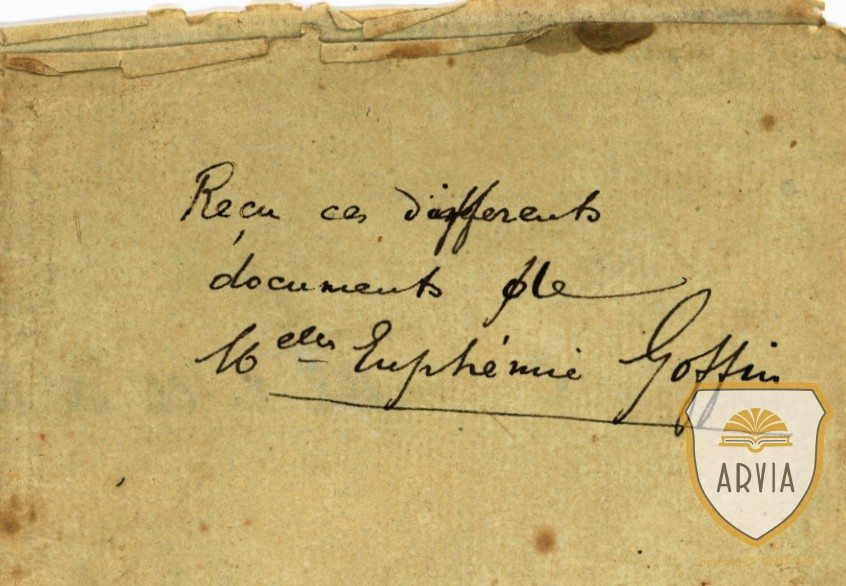 Reçu ces differents
documents de
Melle Euphémie Goffin
ARVIA